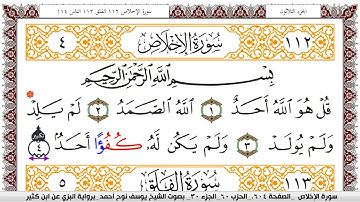 الجزء الثلاثون سورة الإخلاص ١١٢ الفلق ١١٣ الناس ١١٤
١١٢ سُورَةُ الْإِخْلَاصِ ٤
بِسْمِ اللَّهِ الرَّحْمَٰنِ الرَّحِيمِ
قُلْ هُوَ اللَّهُ أَحَدٌ ١ اللَّهُ الصَّمَدُ ٢ لَمْ يَلِدْ
وَلَمْ يُولَدْ ٣ وَلَمْ يَكُن لَّهُ كُفُؤًا أَحَدٌ ٤
١١٣ سُورَةُ الْفَلَقِ ٥
سورة الإخلاص الصفحة ٦٠٤ الحزب ٦٠ الجزء ٣٠ بصوت الشيخ يوسف نوح أحمد برواية البزي عن ابن كثير